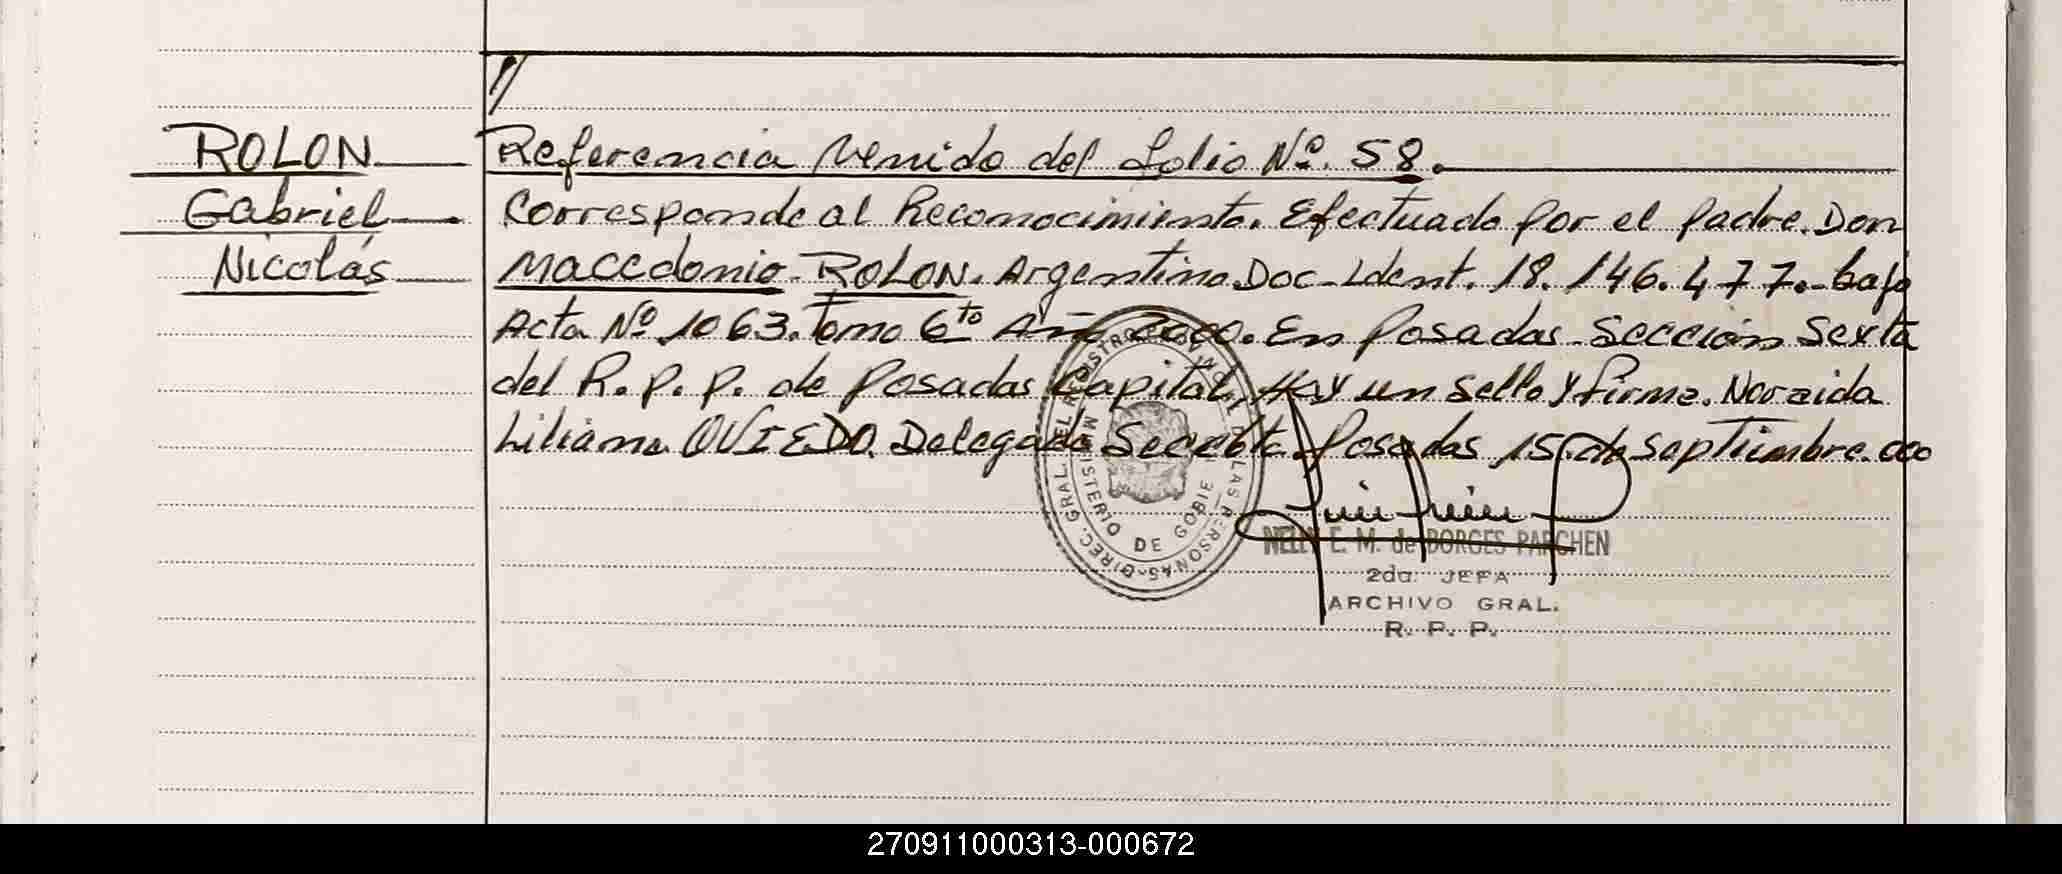 1/
ROLON Referencia venido del folio Nº. 58.
Gabriel Corresponde al Reconocimiento. Efectuado por el padre. Don
Nicolás Macedonio ROLON. Argentino. Doc-Ident. 18.146.477.- bajo
Acta Nº 1063. Tomo 6to Año 2000. En Posadas Sección Sexta
del R.P.P. de Posadas Capital. Hay un sello y firma. Noraida
Liliana OVIEDO. Delegada Posadas 15 de Septiembre. 000
DIREC. GRAL. DEL REGISTRO PROVINCIAL DE LAS PERSONAS
MINISTERIO DE GOBIE
NELLY E. M. de BORGES PARCHEN
2da. JEFA
ARCHIVO GRAL.
R. P. P.
270911000313-000672